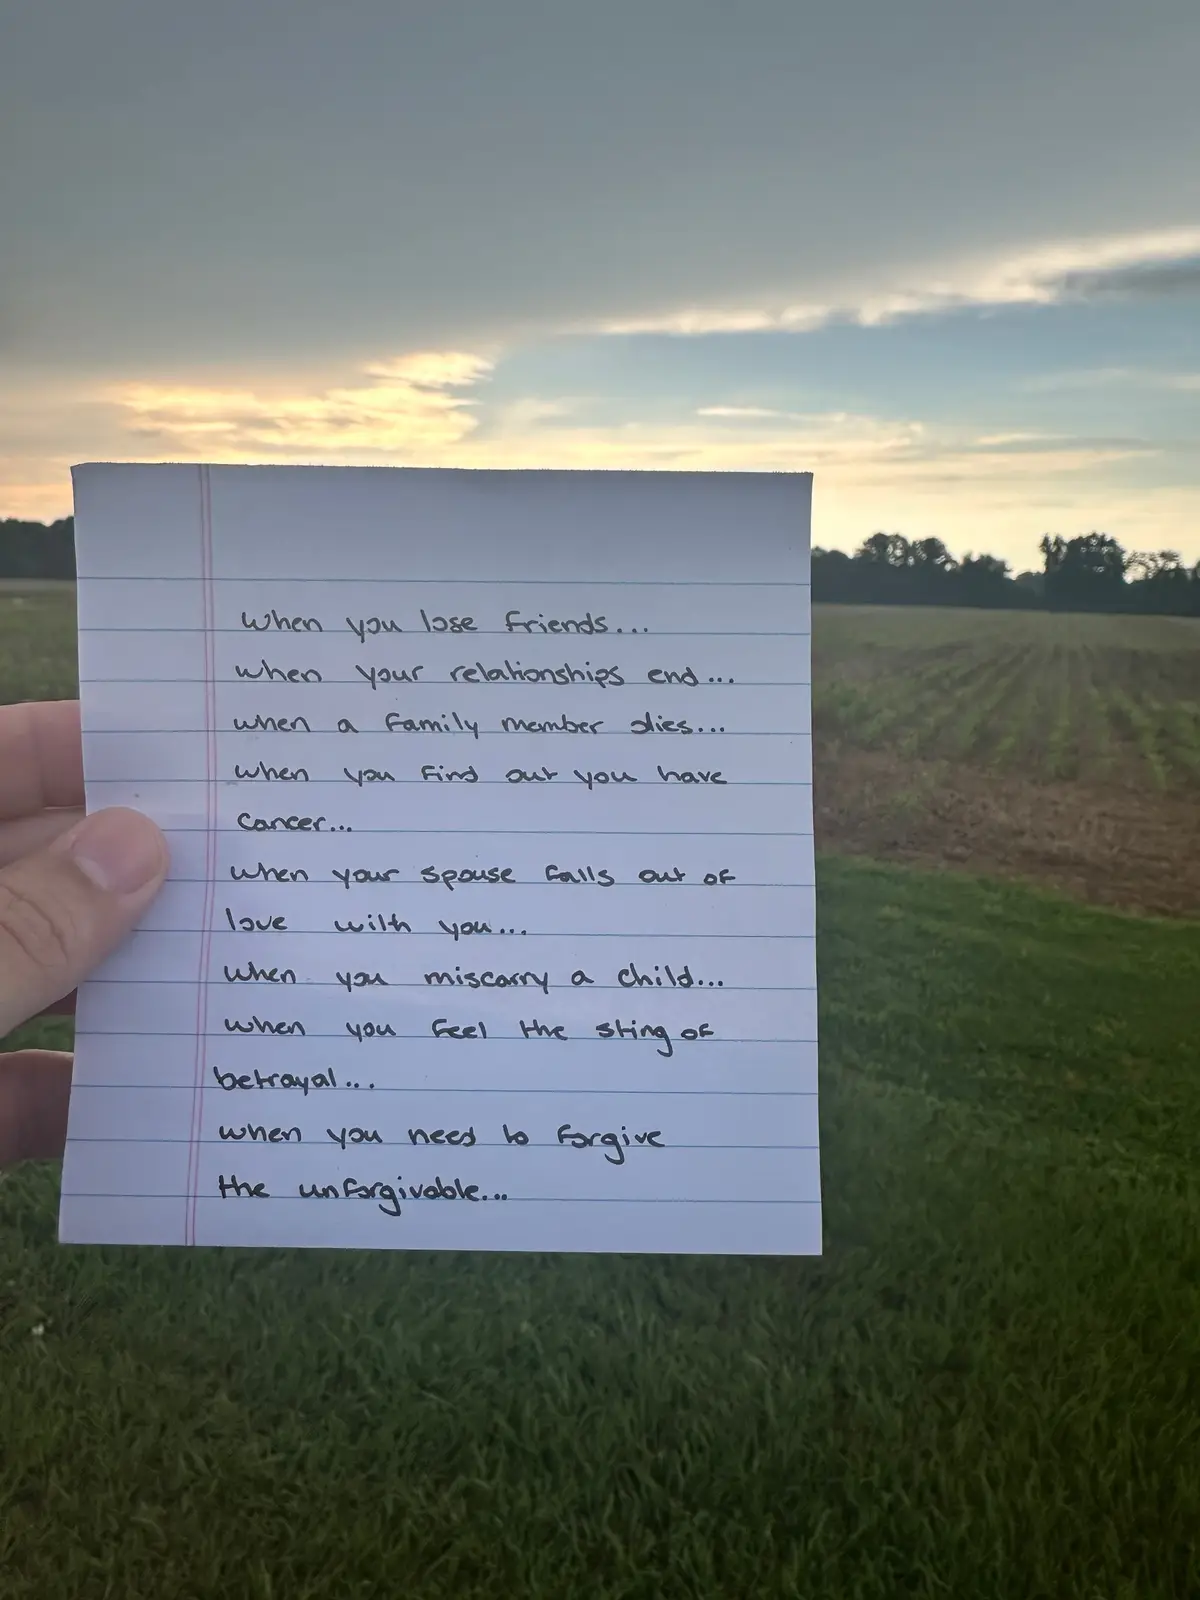 When you lose friends...
when your relationships end...
when a family member dies...
when you find out you have
cancer...
when your spouse falls out of
love with you...
when you miscarry a child...
when you feel the sting of
betrayal...
when you need to forgive
the unforgivable...